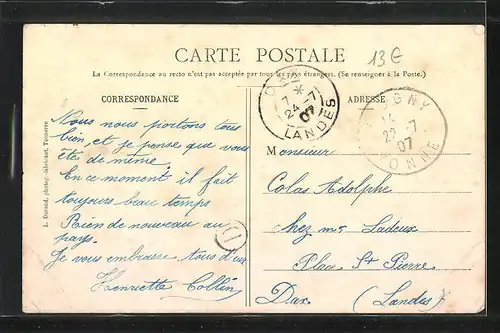 CARTE POSTALE
13€
La Correspondance au recto n'est pas acceptée par tous les pays étrangers. (Se renseigner à la Poste.)
CORRESPONDANCE
ADRESSE
7 *
24-7
07
LANDES
GNY
22-7
07
YONNE
Nous nous portons tous
bien et je pense que vous
êtes de même.
En ce moment il fait
toujours beau temps
Rien de nouveau au
pays.
Je vous embrasse tous deux
Henriette Collin
Monsieur
Colas Adolphe
chez mr Ladeux
Place St Pierre
Dax (Landes)
L. Durand, photog.-fabricant, Tonnerre